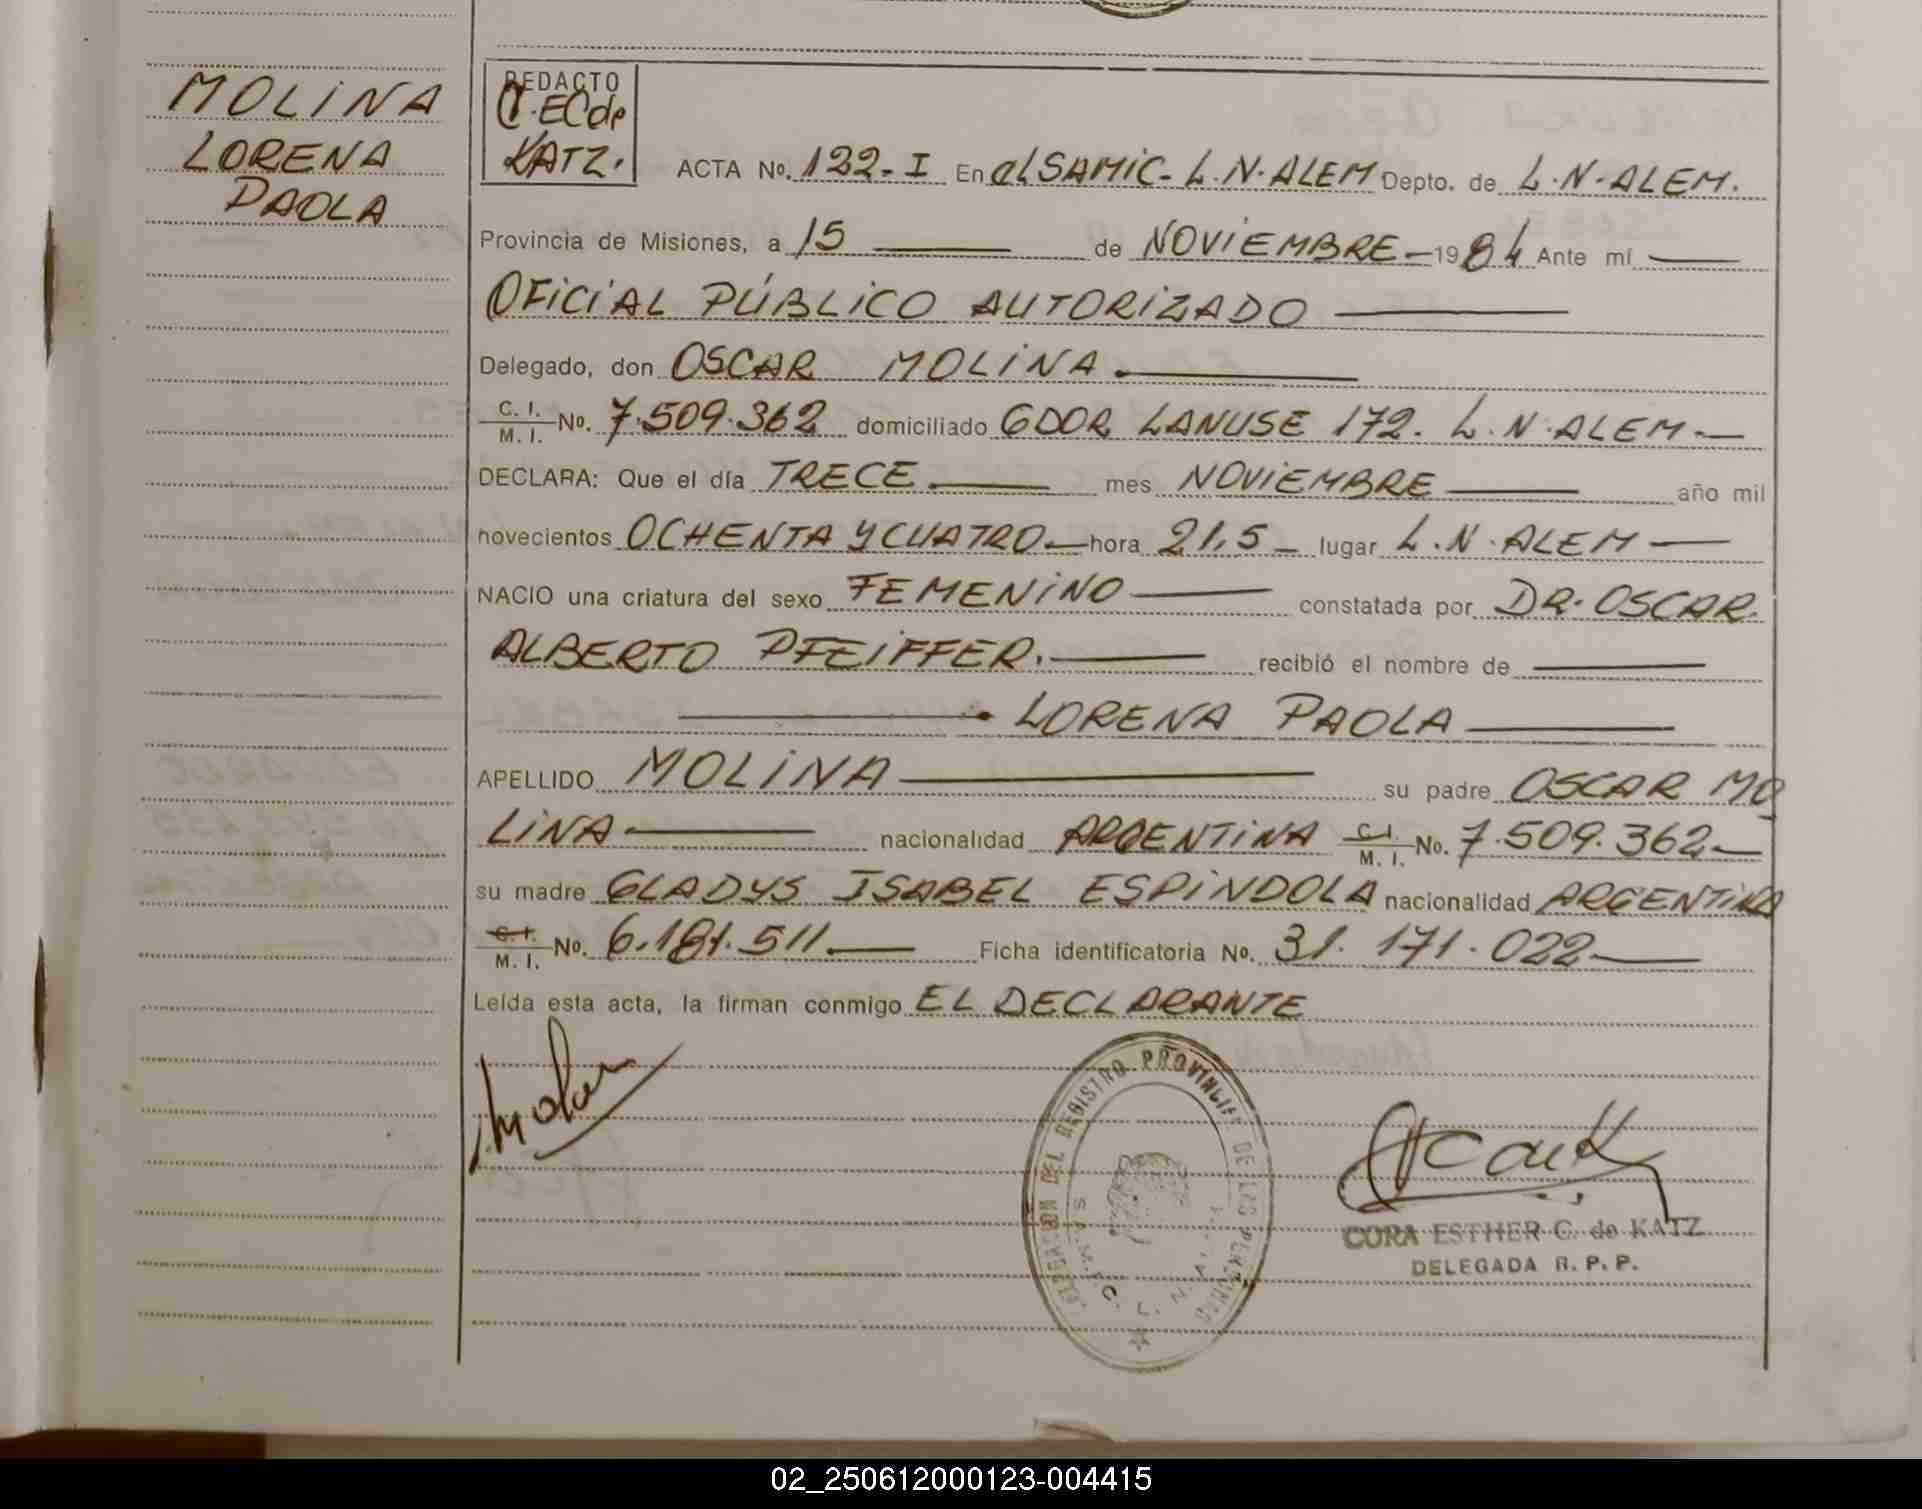 MOLINA
LORENA
PAOLA
REDACTO
C.ECde
KATZ.
ACTA No. 122-I En el SAMIC- L.N.ALEM Depto. de L.N.ALEM.
Provincia de Misiones, a 15 de NOVIEMBRE 1984 Ante mí
OFICIAL PÚBLICO AUTORIZADO
Delegado, don OSCAR MOLINA.
C. I. M. I. No. 7.509.362 domiciliado GDOR LANUSE 172. L.N.ALEM.
DECLARA: Que el día TRECE mes NOVIEMBRE año mil
novecientos OCHENTA Y CUATRO hora 21,5 lugar L.N.ALEM
NACIO una criatura del sexo FEMENINO constatada por DR. OSCAR
ALBERTO PFEIFFER. recibió el nombre de
LORENA PAOLA
APELLIDO MOLINA su padre OSCAR MO
LINA nacionalidad ARGENTINA C. I. M. I. No. 7.509.362
su madre GLADYS ISABEL ESPINDOLA nacionalidad ARGENTINA
C. I. M. I. No. 6.181.511 Ficha identificatoria No. 31.171.022
Leída esta acta, la firman conmigo EL DECLARANTE
DELEGACION DEL REGISTRO PROVINCIAL DE LAS PERSONAS
S.A.M.I.C. L.N.ALEM
CORA ESTHER C. de KATZ
DELEGADA R. P. P.
02_250612000123-004415